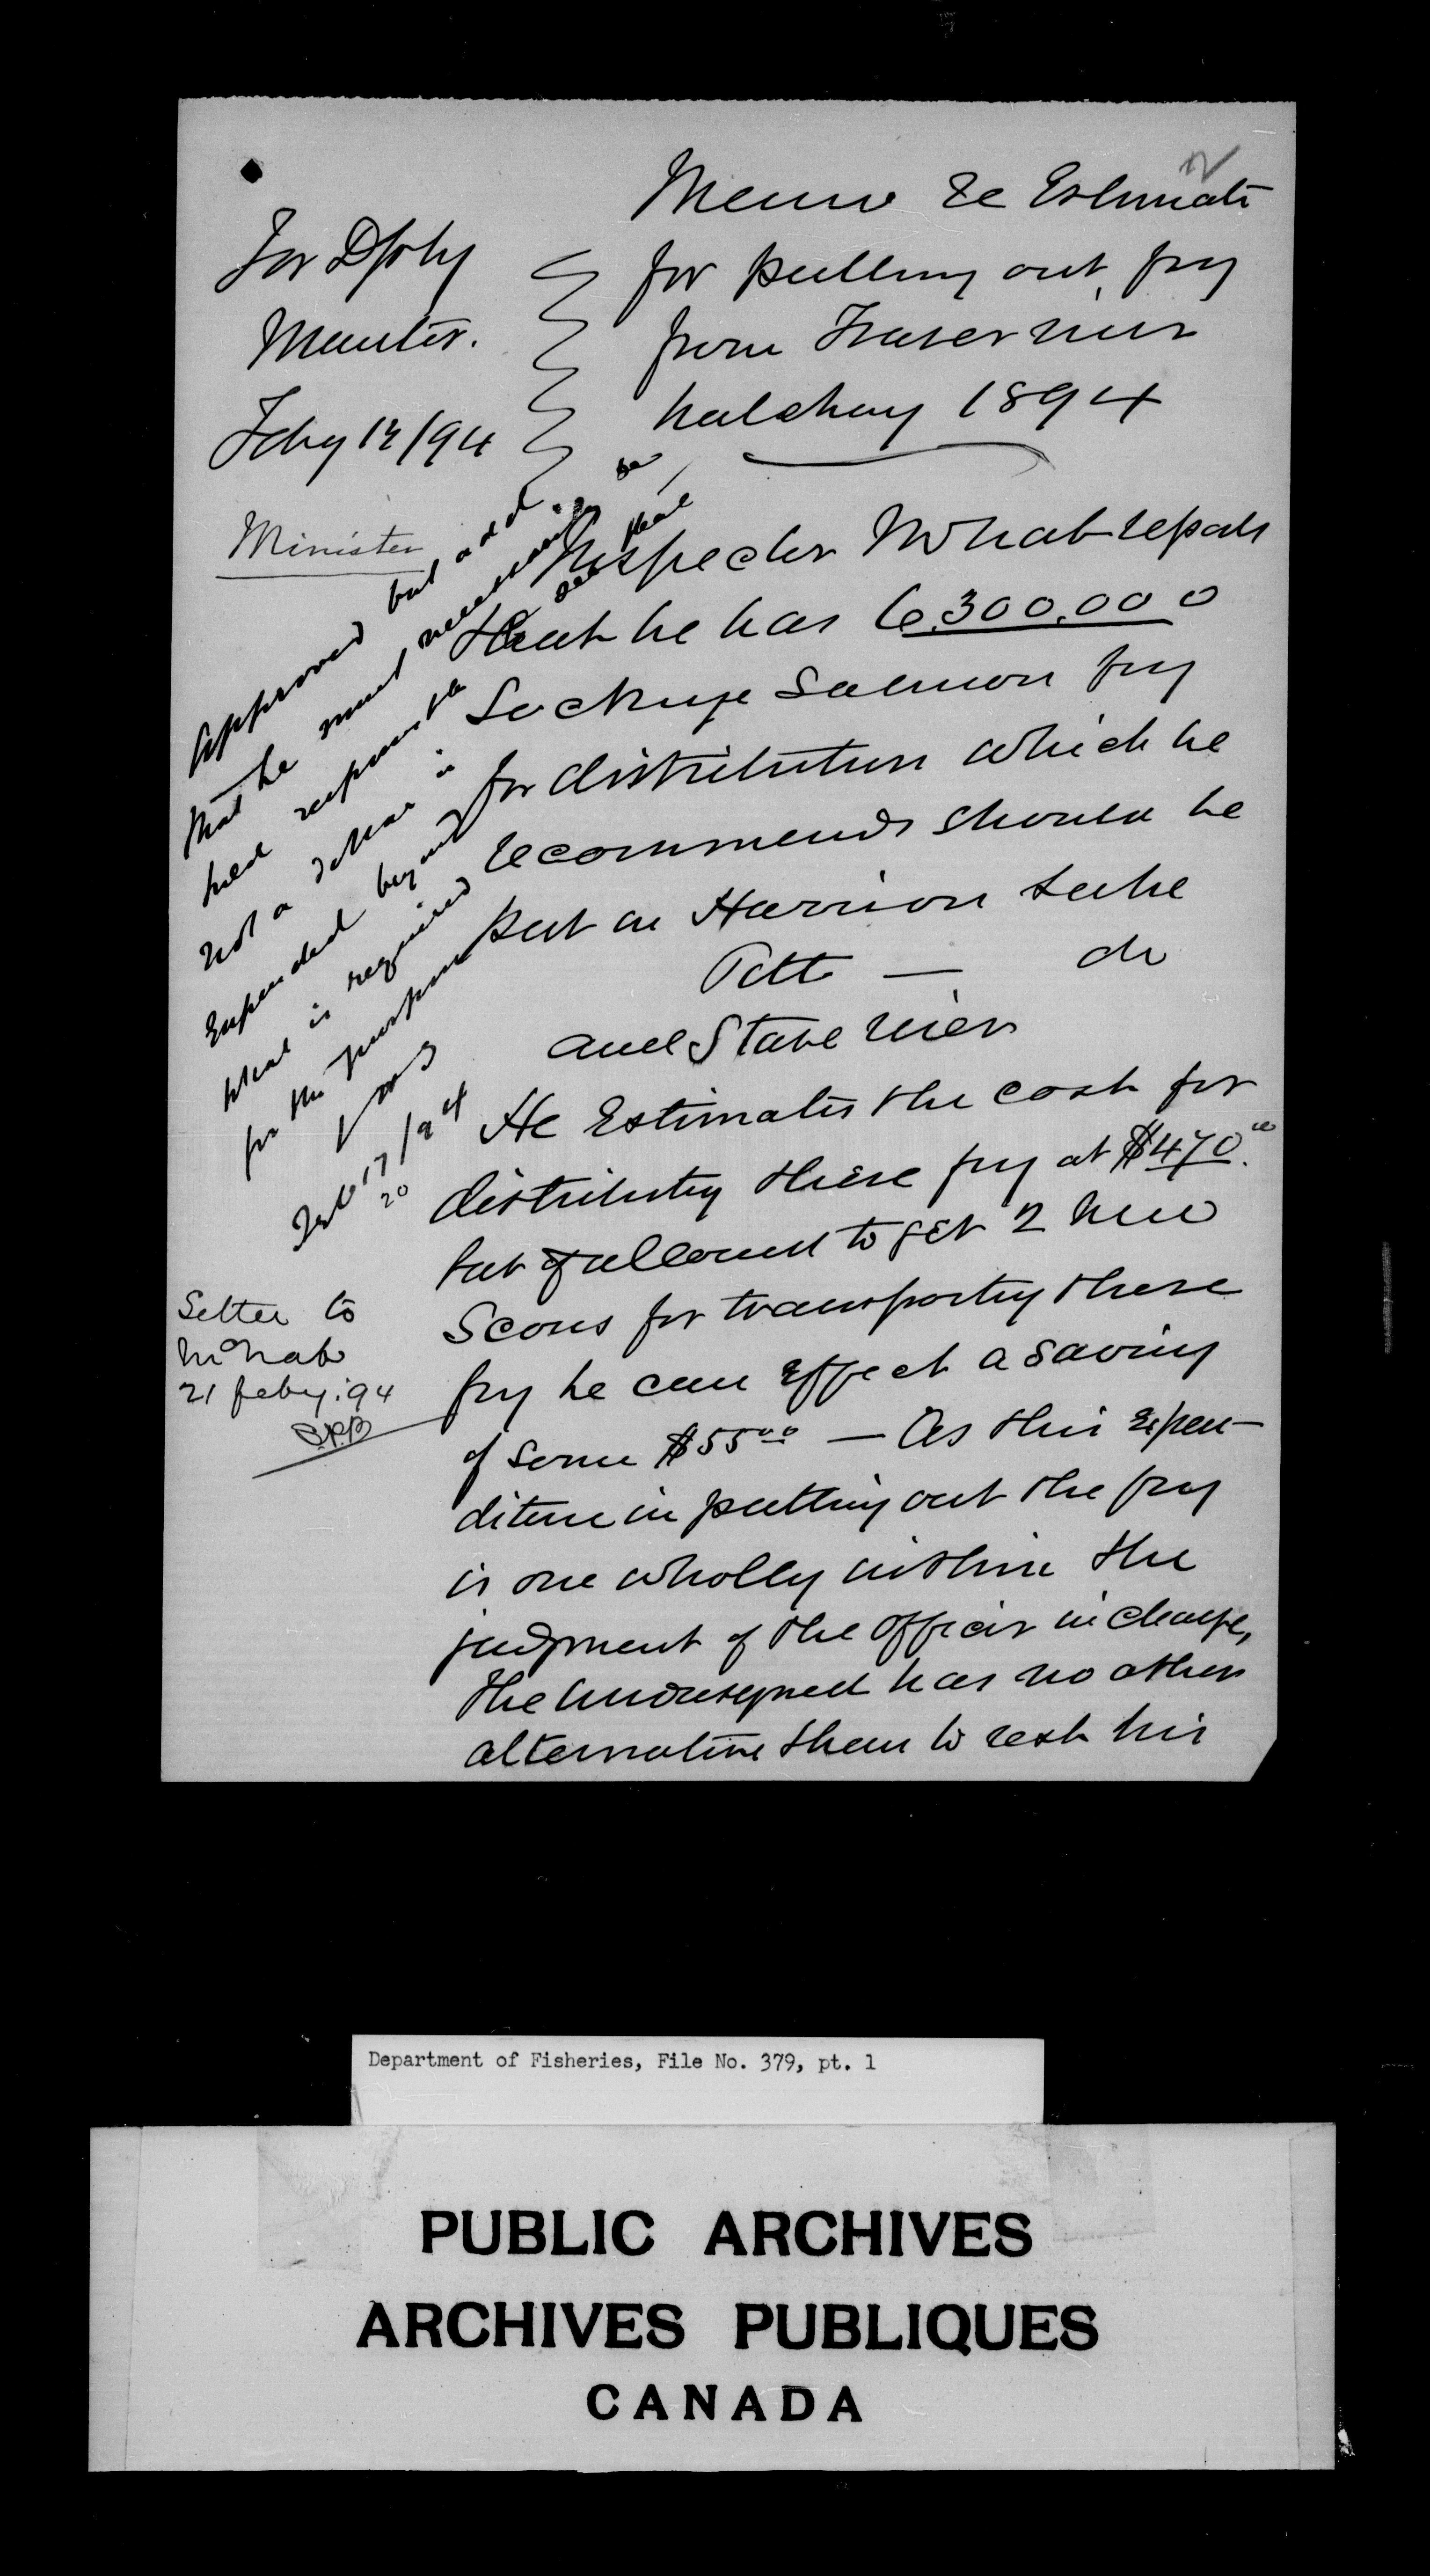 Memo re Estimate
for putting out fry
from Fraser river
hatchery 1894
For Dpty
Minister.
Feby 12/94
Minister
Approved but add
that he must necessarily be
held responsible to see that
not a dollar is
expended beyond
what is required
for the purpose
Feb 17/94
20
Letter to
McNab
21 feby. '94
Inspector McNab reports
that he has 6,300,000
Sockeye Salmon fry
for distribution which he
recommends should be
put in Harrison Lake
Pitt — do
and Stave river
He Estimates the cost for
distributing these fry at $470.00
but if allowed to get 2 new
Scows for transporting these
fry he can effect a saving
of some $55.00 — As this expen-
diture in putting out the fry
is one wholly within the
judgment of the officer in charge,
the undersigned has no other
alternative than to rest his
Department of Fisheries, File No. 379, pt. 1
PUBLIC ARCHIVES
ARCHIVES PUBLIQUES
CANADA